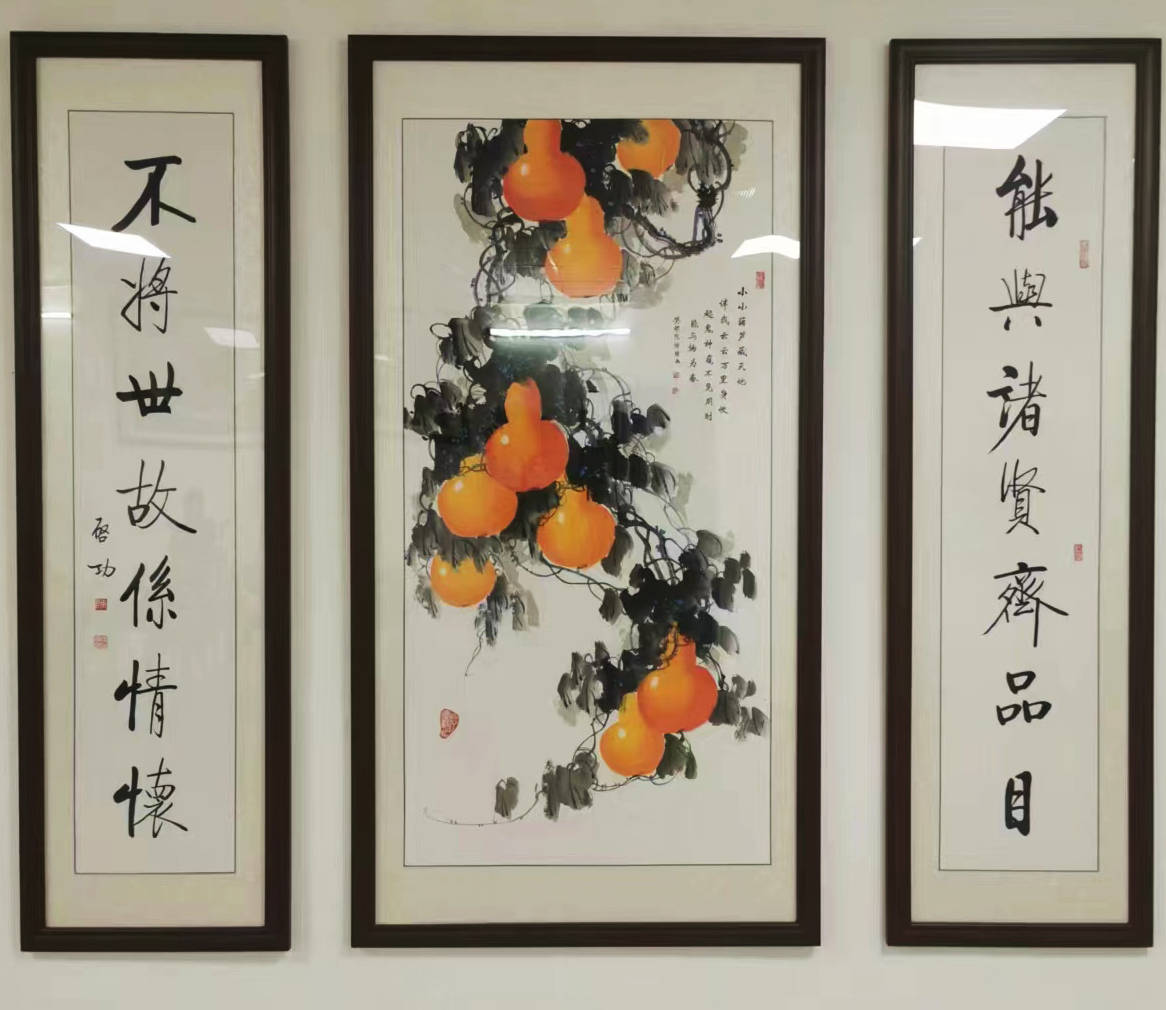 能與諸賢齊品目
小小葫芦藏天地
伴我云云万里身收
起鬼神窥不见用时
能与物为春
不將世故係情懷
启功